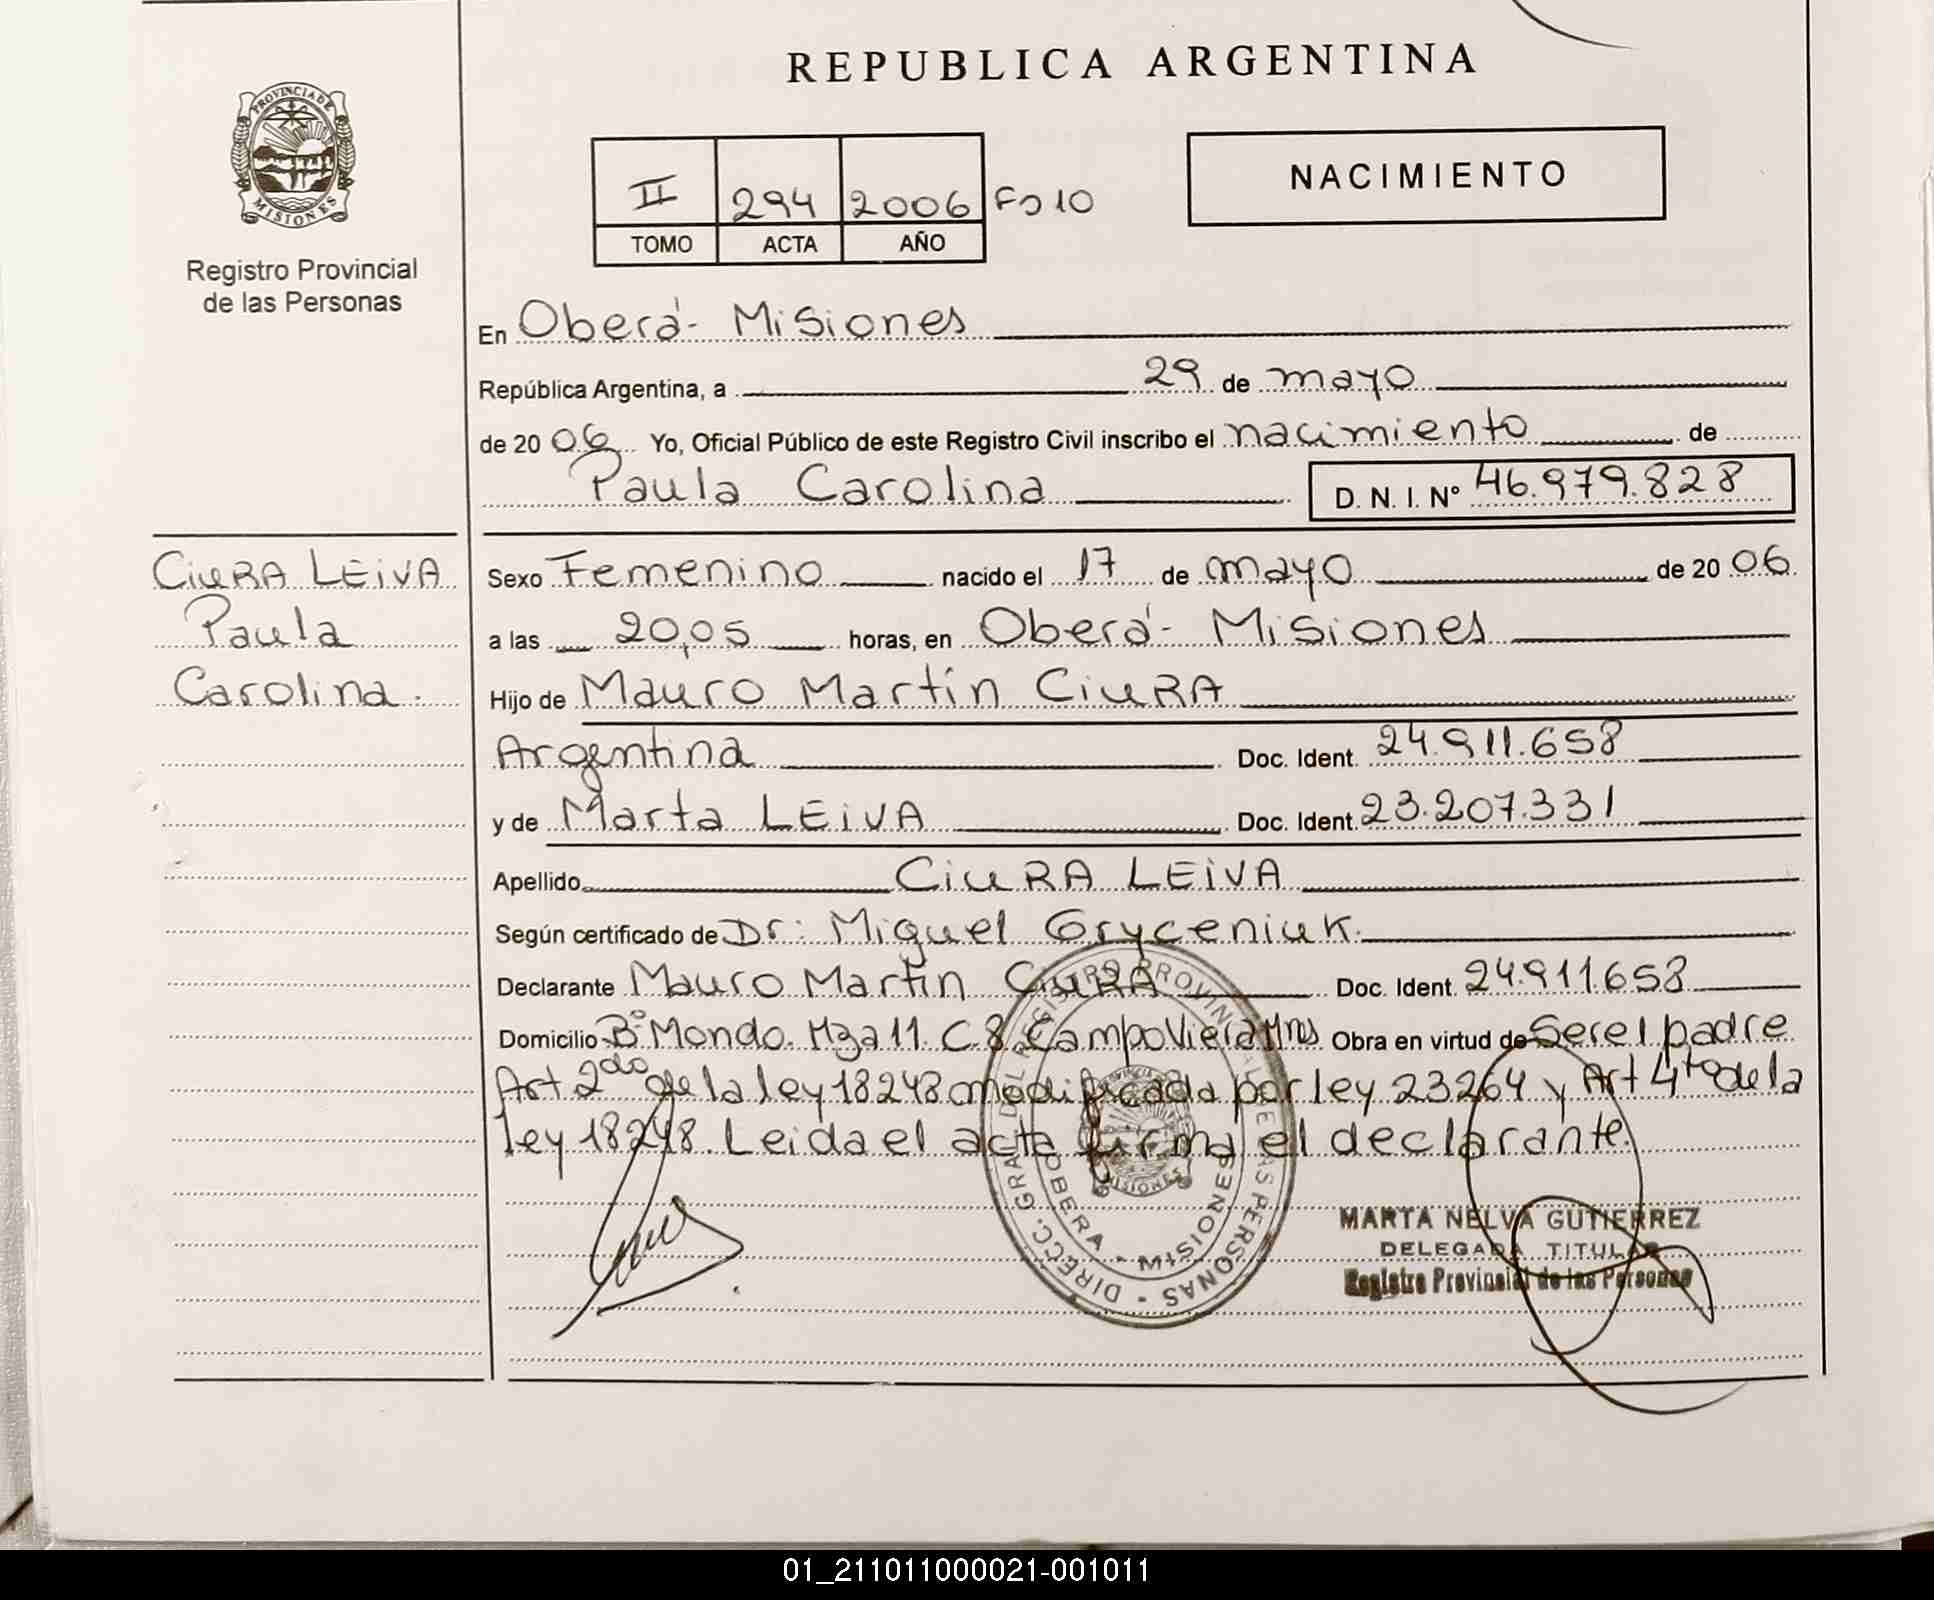 REPUBLICA ARGENTINA
PROVINCIA DE
MISIONES
Registro Provincial
de las Personas
II 294 2006 Fo 10
TOMO ACTA AÑO
NACIMIENTO
En Oberá - Misiones
República Argentina, a 29 de mayo
de 20 06 Yo, Oficial Público de este Registro Civil inscribo el nacimiento de
Paula Carolina D. N. I. Nº 46.979.828
CiuRA LEiVA
Paula
Carolina.
Sexo Femenino nacido el 17 de mayo de 20 06
a las 20,05 horas, en Oberá - Misiones
Hijo de Mauro Martín CiuRA
Argentina Doc. Ident. 24.911.658
y de Marta LEiVA Doc. Ident. 23.207.331
Apellido CiuRA LEiVA
Según certificado de Dr: Miguel Gryceniuk.
Declarante Mauro Martín CiuRA Doc. Ident. 24.911.658
Domicilio Bº Mondo. Mza 11. C.8. Campo Viera Mns Obra en virtud de Ser el padre
Art 2do de la ley 18248 modificada por ley 23264 y Art 4to de la
ley 18248. Leida el acta firma el declarante.
DIRECC. GRAL. DEL REGISTRO PROVINCIAL DE LAS PERSONAS -
OBERA - MISIONES
MARTA NELVA GUTIERREZ
DELEGADA TITULAR
Registro Provincial de las Personas
01_211011000021-001011